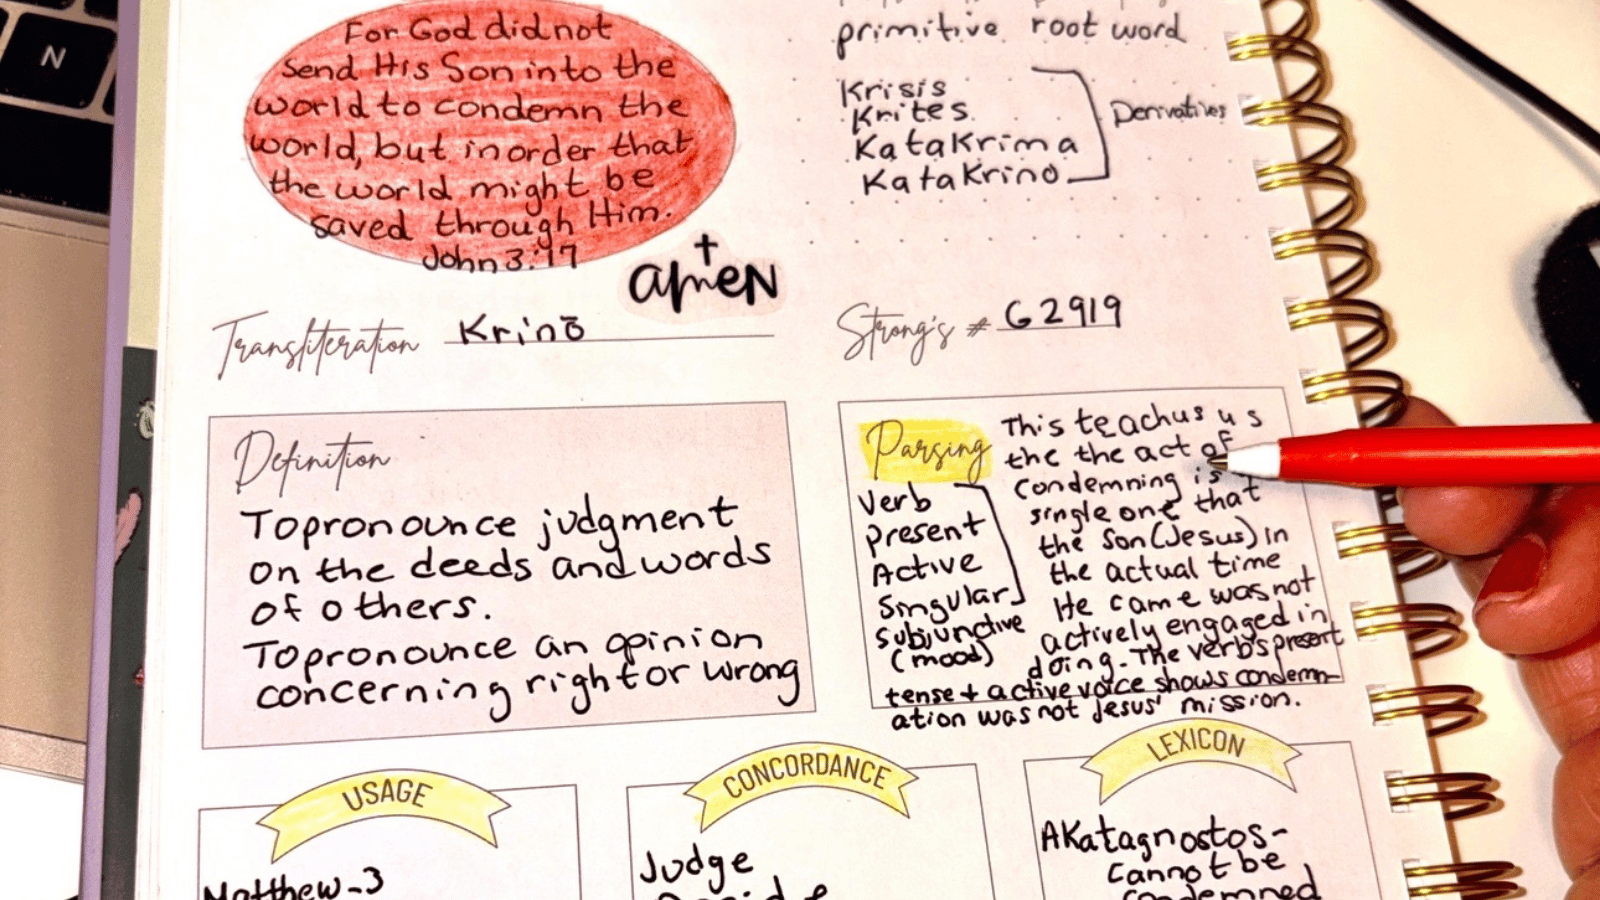 N
For God did not
send His Son into the
world to condemn the
world, but in order that
the world might be
saved through Him.
John 3:17
amen
primitive root word
Krisis
Krites
Katakrima
Katakrino
Derivatives
Transliteration Krinō
Strong's # G2919
Definition
To pronounce judgment
on the deeds and words
of others.
To pronounce an opinion
concerning right or wrong
Parsing
Verb
Present
Active
Singular
Subjunctive
(mood)
This teachus us
the the act of
condemning is
single one that
the Son (Jesus) in
the actual time
He came was not
actively engaged in
doing. The verb's present
tense + active voice shows condemn-
ation was not Jesus' mission.
USAGE
Matthew-3
CONCORDANCE
Judge
LEXICON
AKatagnostos-
cannot be
condemned